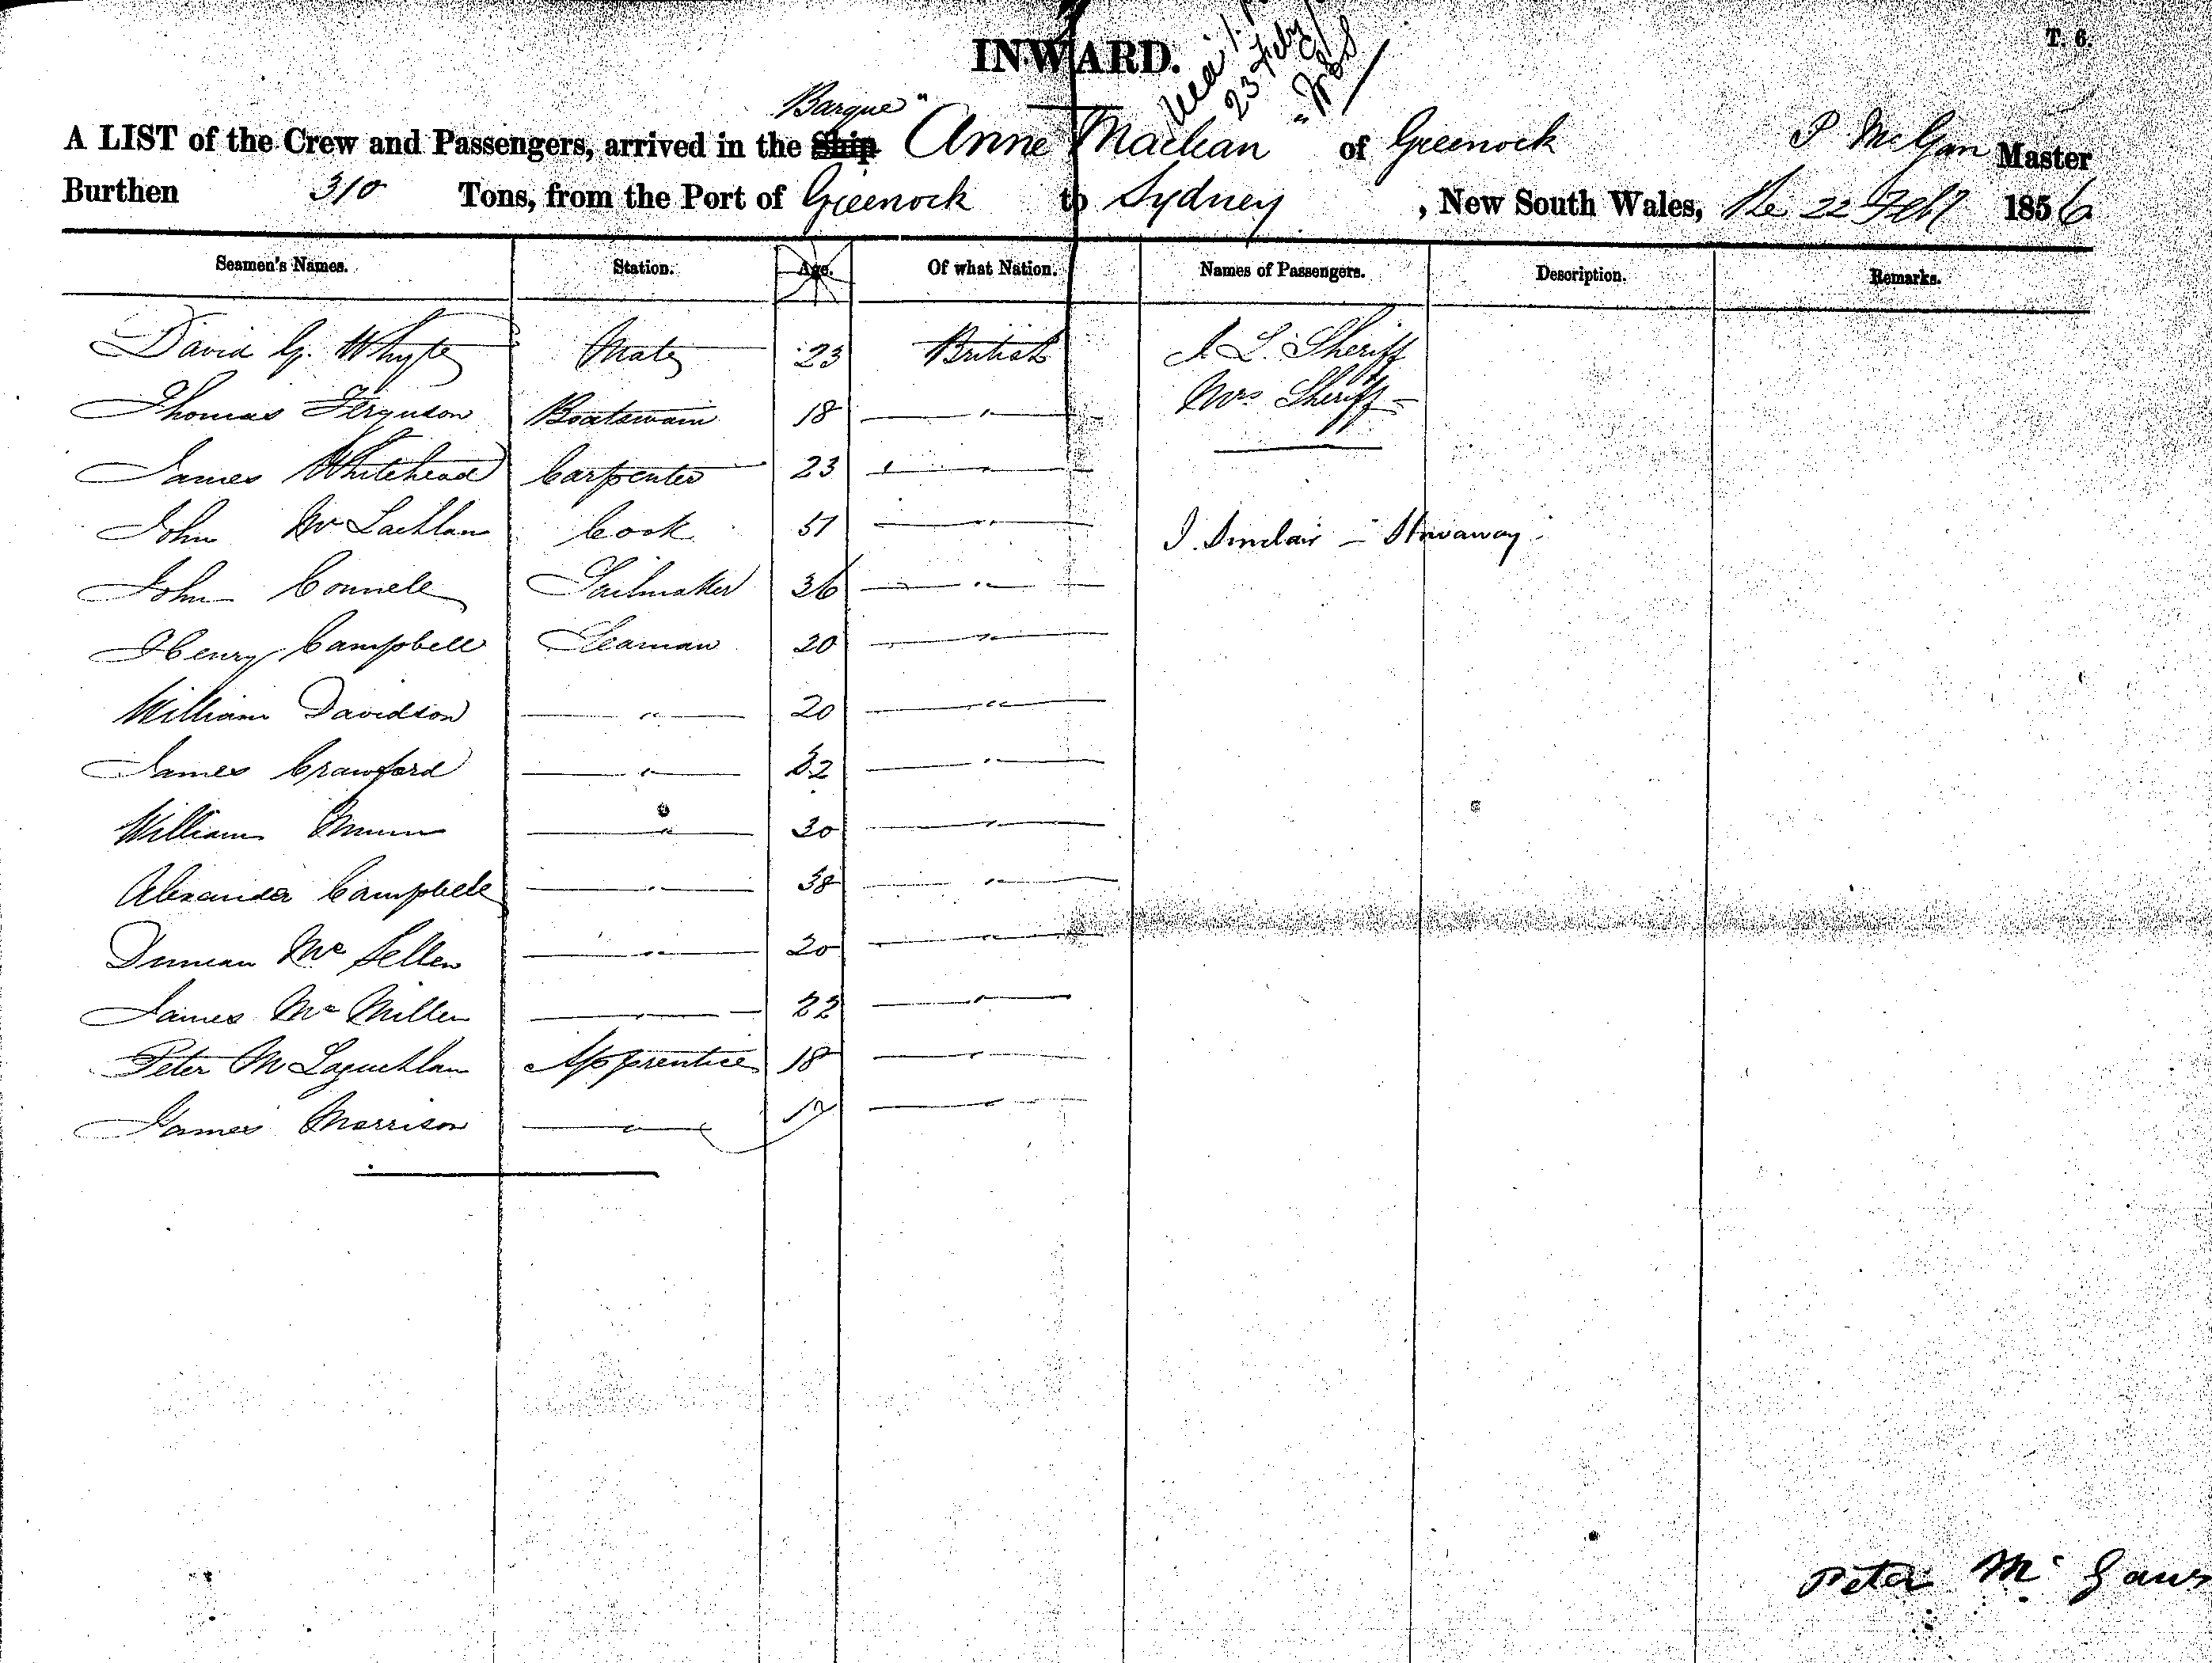 INWARD.
T. 6.
23 Feby
Barque "
A LIST of the Crew and Passengers, arrived in the Ship Anne Maclean of Greenock P McGan Master
Burthen 310 Tons, from the Port of Greenock to Sydney , New South Wales, the 22 Feby 1856
Seamen's Names. Station. Age. Of what Nation. Names of Passengers. Description. Remarks.
David G. Whyte Mate 23 British L. Sheriff
Thomas Ferguson Boatswain 18 — " — Mrs Sheriff
James Whitehead Carpenter 23 — " —
John Mc Lachlan Cook 51 — " — J. Sinclair — Stowaway
John Connell Sailmaker 36 — " —
Henry Campbell Seaman 20 — " —
William Davidson — " — 20 — " —
James Crawford — " — 32 — " —
William Munn — " — 30 — " —
Alexander Campbell — " — 38 — " —
Duncan Mc — " — 20 — " —
James Mc Millen — " — 22 — " —
Peter Mc Lauchlan Apprentice 18 — " —
James Morrison — " — 17 — " —
Peter Mc Gaw